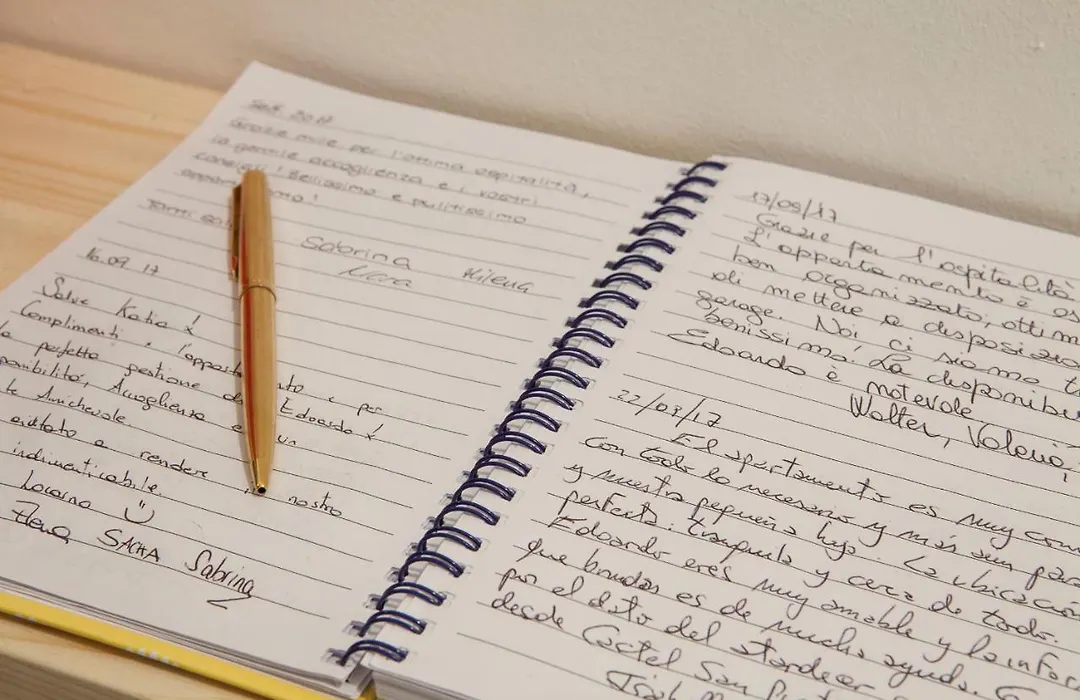 Set 2017
Grazie mille per l'ottima ospitalità,
la gentile accoglienza e i vostri
consigli! Bellissimo e pulitissimo
Sabrina Milena
16.09.17
Salve Katia!
Complimenti, e per
la perfetta gestione di Edoardo!
Accoglienza e un
te Amichevole.
aiutato a rendere nostro
indimenticabile.
Locarno
Elena SACHA Sabrina
17/09/17
Grazie per l'ospitalità
L'appartamento è
ben organizzato, ottim
di mettere a disposizio
garage. Noi ci siamo
benissimo! La disponibi
Edoardo è notevole
Walter, Valeria,
22/09/17
El apartamento es muy
con todo lo necesario y más aun para
y nuestra pequeña hija. La ubicación
perfecta: tranquila y cerca de todo.
Edoardo eres muy amable y la infor
que brindas es de mucha ayuda.
por el dato del atardecer
desde Castel San